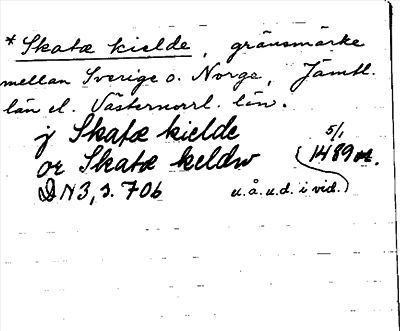 *Skatæ kielde, gränsmärke
mellan Sverige o. Norge, Jämtl.
län el. Västernorrl. län.
j Skatæ kielde 5/1
or Skatæ keldw 1489
DN3, s. 706 u.å.u.d. i vid.